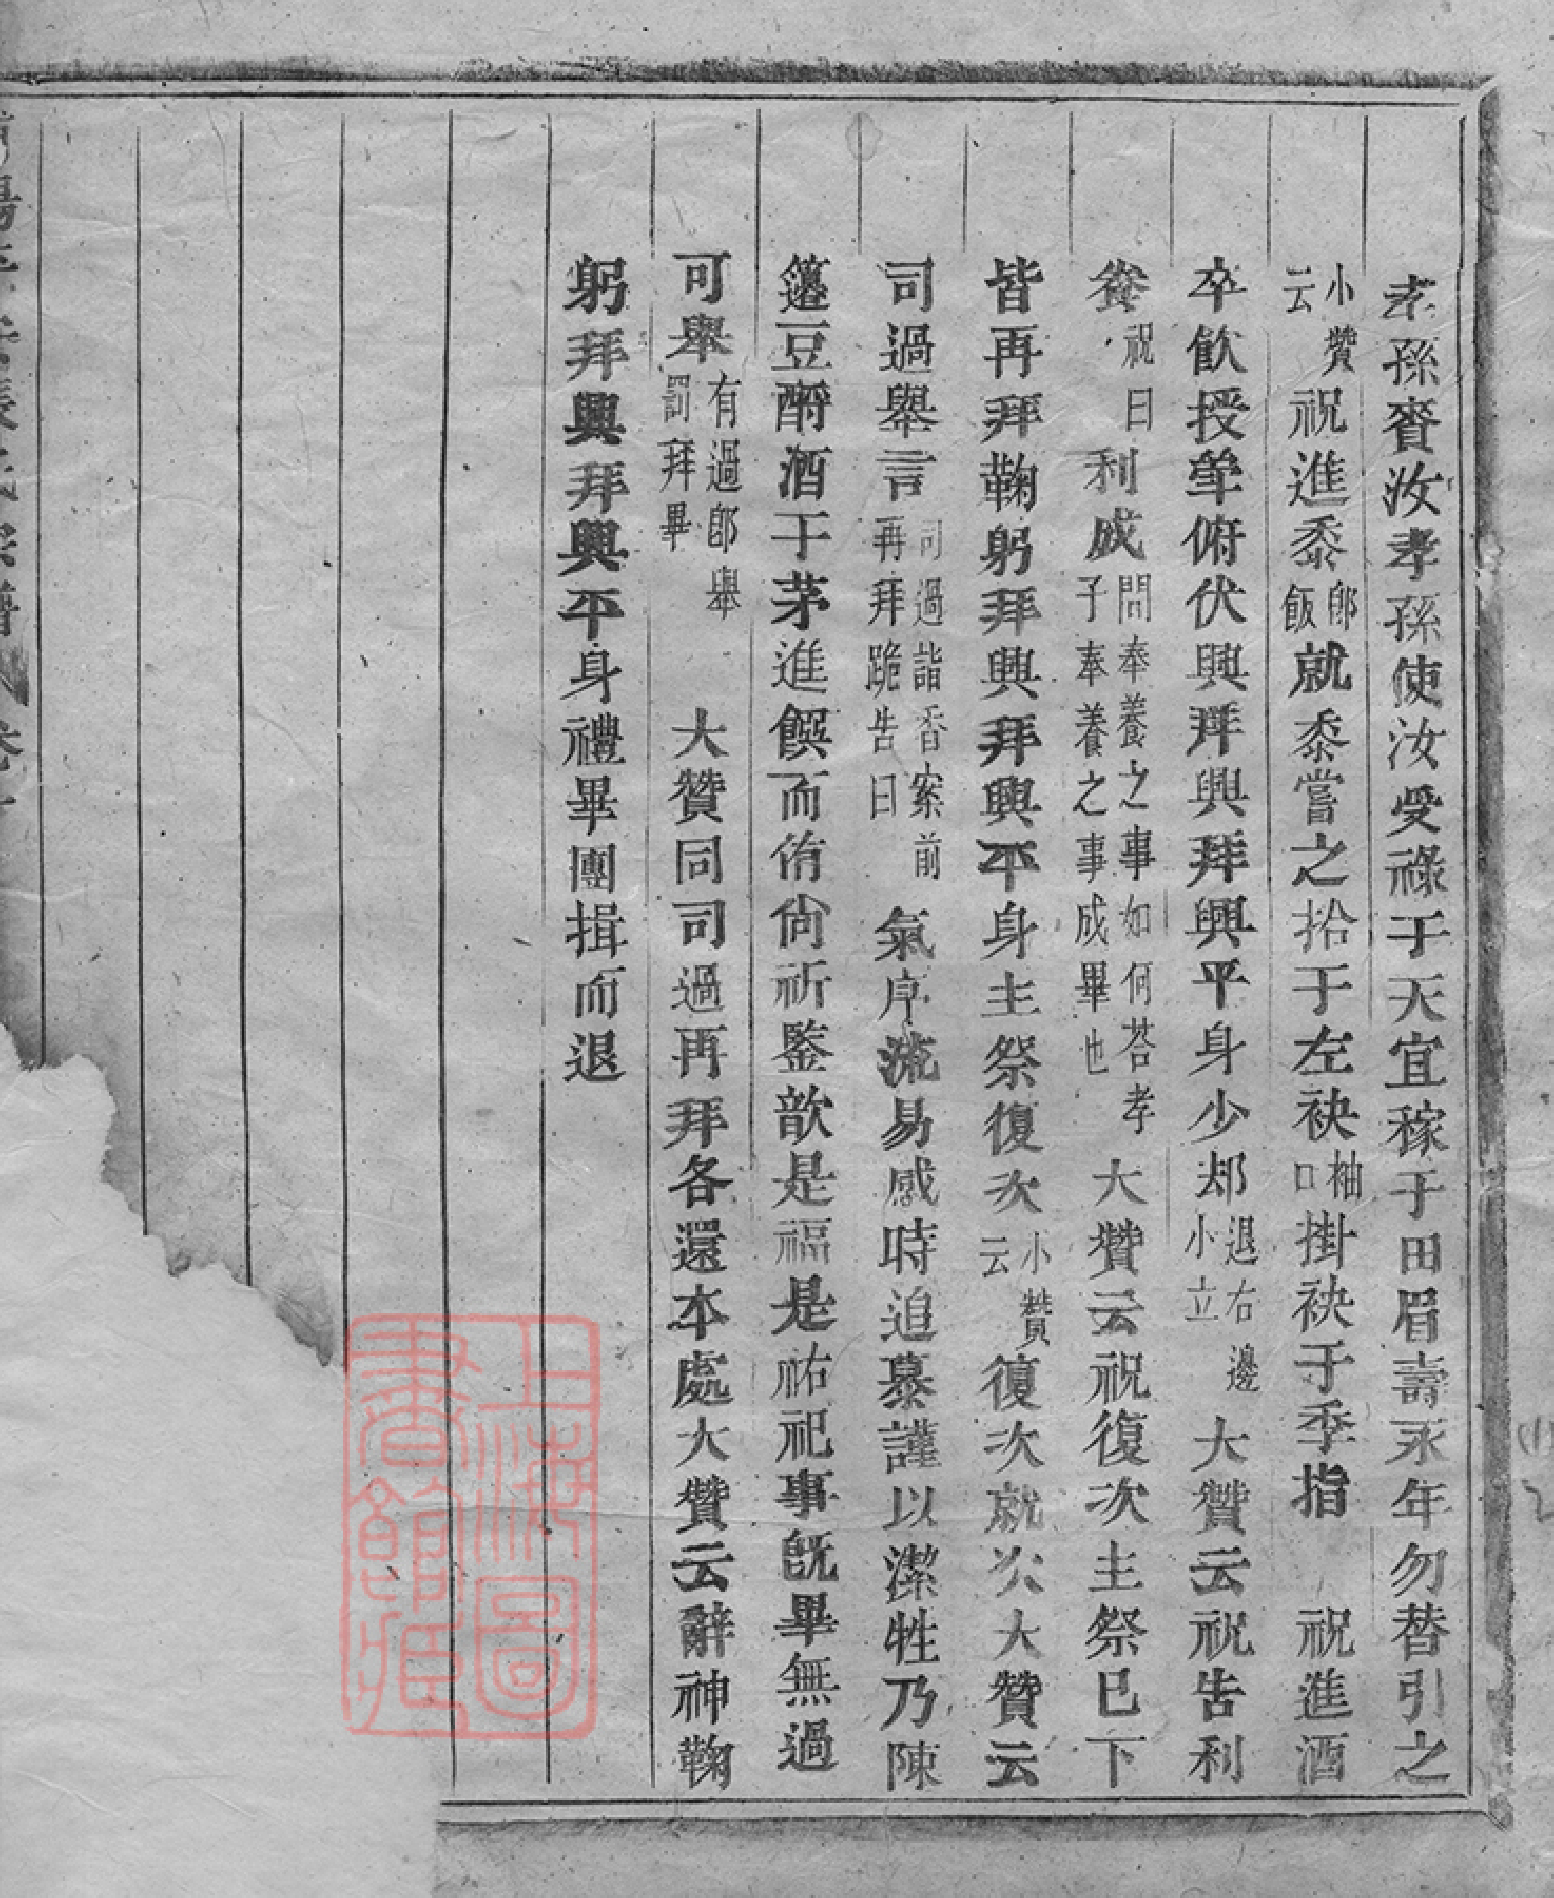 孝孫賚汝孝孫使汝受祿于天宜稼于田眉壽永年勿替引之
小贊云祝進黍即飯就黍嘗之拾于左袂袖口掛袂于季指 祝進酒
卒飲授箪俯伏興拜興拜興平身少却退右邊小立 大贊云祝告利
養祝曰利成問奉養之事如何荅孝子奉養之事成畢也 大贊云祝復次主祭已下
皆再拜鞠躬拜興拜興平身主祭復次小贊云復次就次大贊云
司過舉言司過詣香案前再拜跪告曰 氣序流易感時追慕謹以潔牲乃陳
籩豆酹酒于茅進饌而侑尙祈鑒歆是福是祐祀事旣畢無過
可舉有過卽舉罰拜畢 大贊同司過再拜各還本處大贊云辭神鞠
躬拜興拜興平身禮畢團揖而退
上海圖書館藏